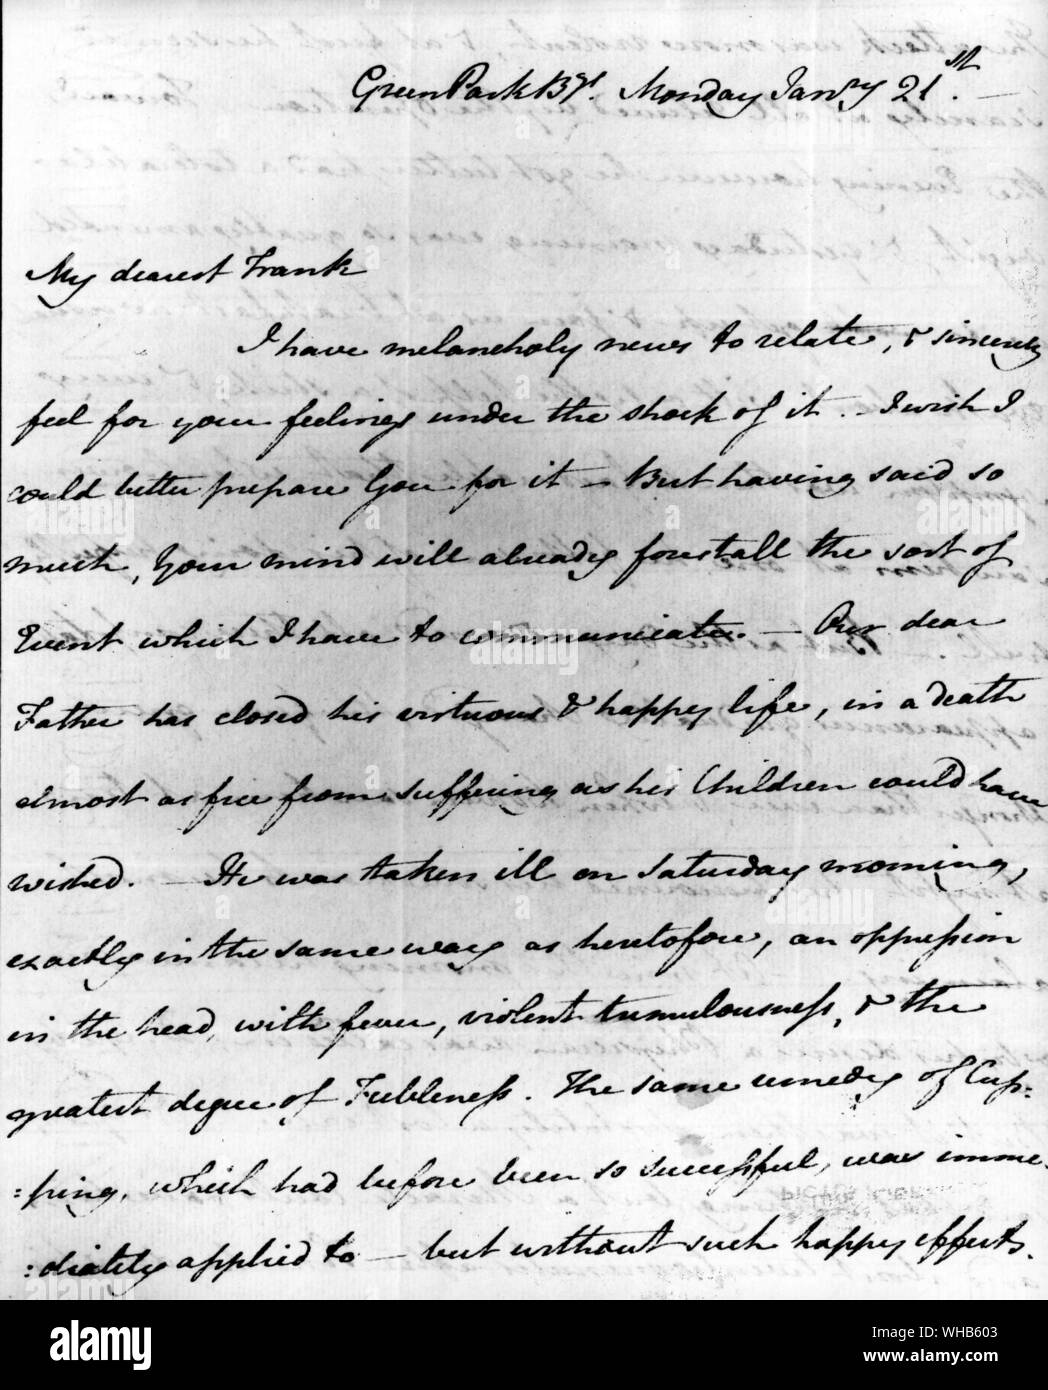 Green Park Bgs. Monday Janry 21st. —
My dearest Frank
I have melancholy news to relate, & sincerely
feel for your feelings under the shock of it. – I wish I
could better prepare You for it – But having said so
much, Your mind will already forestall the sort of
Event which I have to communicate. – Our dear
Father has closed his virtuous & happy life, in a death
almost as free from suffering as his Children could have
wished. – He was taken ill on Saturday morning,
exactly in the same way as heretofore, an oppression
in the head, with fever, violent tumulousness, & the
greatest degree of Feebleness. The same remedy of Cup:
:ping, which had before been so successful, was imme:
:diately applied to – but without such happy effects.
alamy
WHB603
www.alamy.com